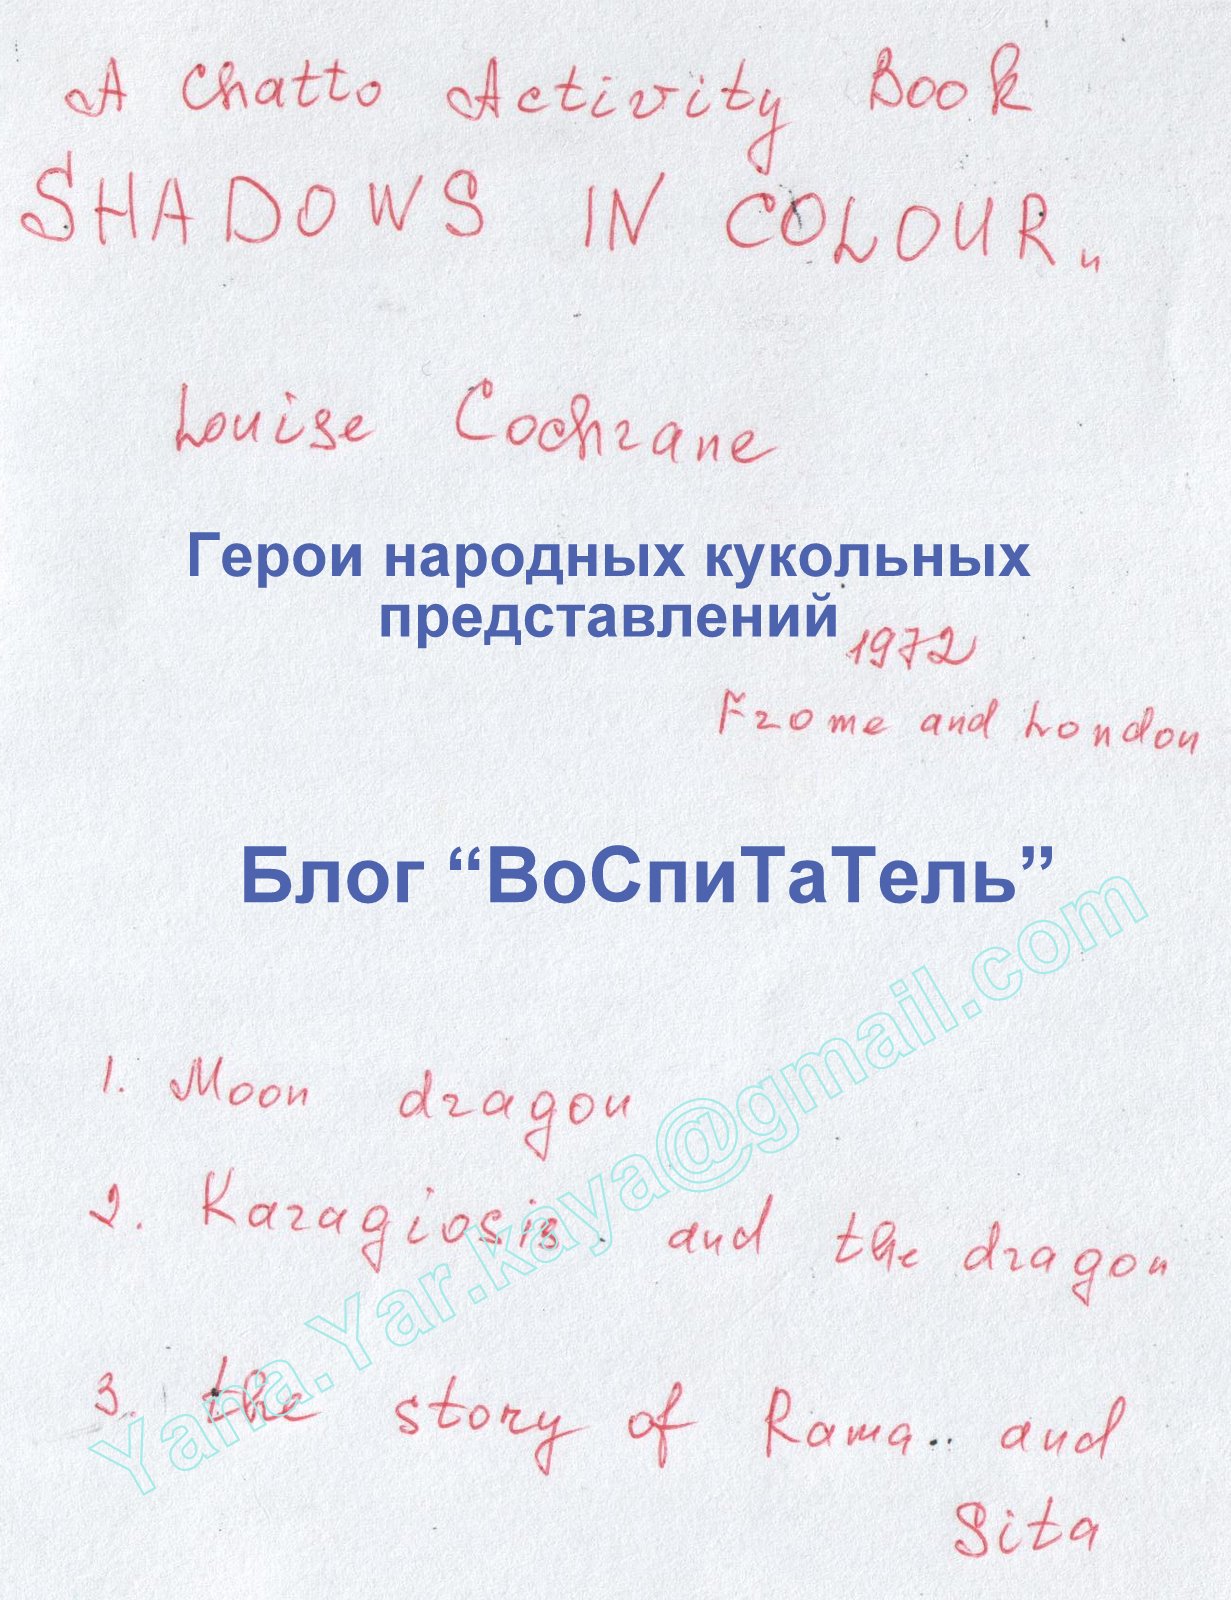 A Chatto Activity Book
SHADOWS IN COLOUR„
Louise Cochrane
Герои народных кукольных
представлений
1972
Frome and London
Блог “ВоСпиТаТель”
1. Moon dragon
2. Karagiosis and the dragon
3. the story of Rama and
Sita
Yana.Yar.kaya@gmail.com